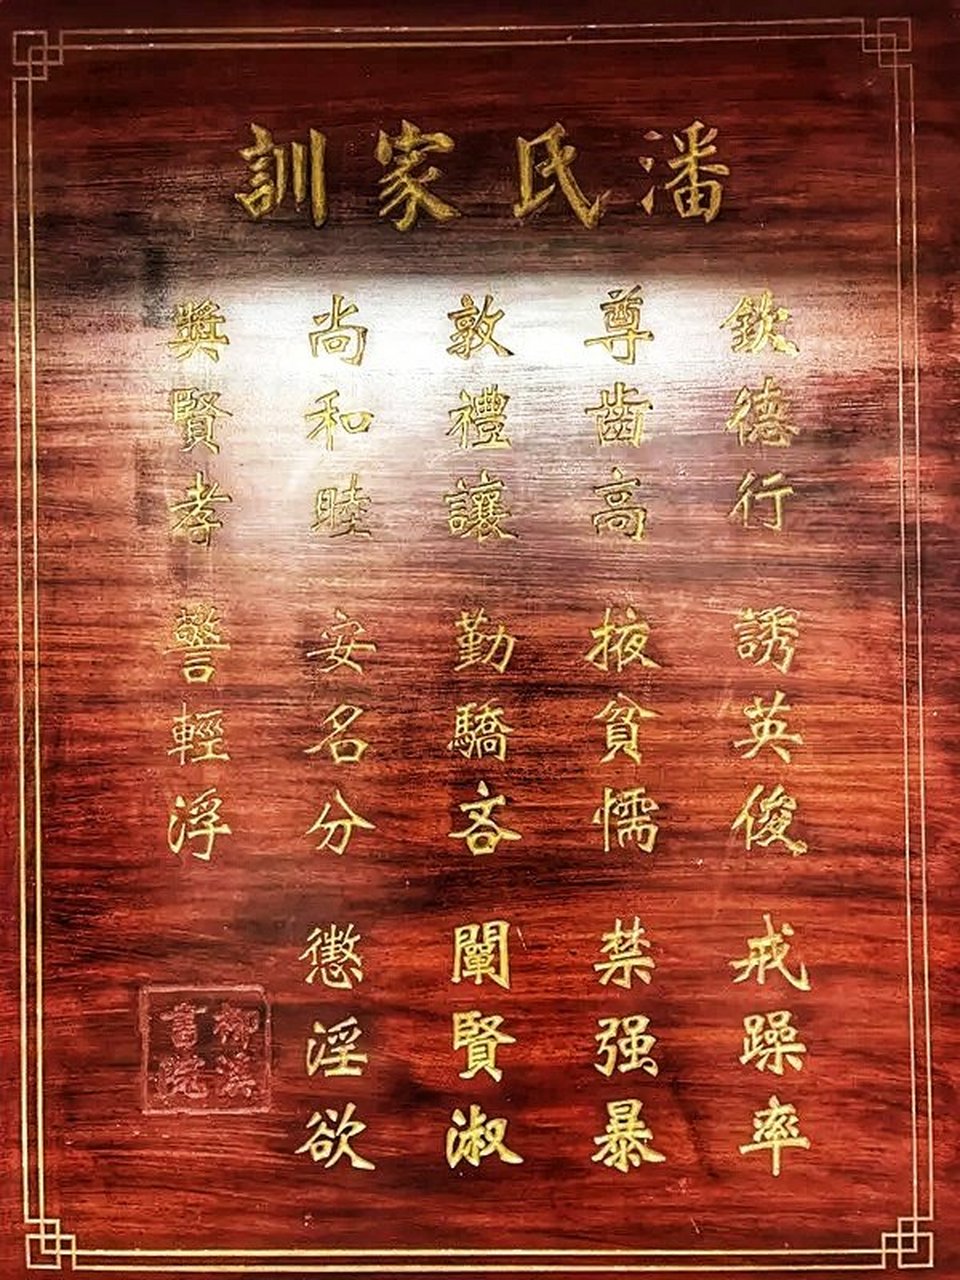 潘氏家訓
欽德行 誘英俊 戒躁率
尊齒高 掖貧懦 禁强暴
敦禮讓 勤驕吝 闡賢淑
尚和睦 安名分 懲淫欲
獎賢孝 警輕浮
柳溪
書院